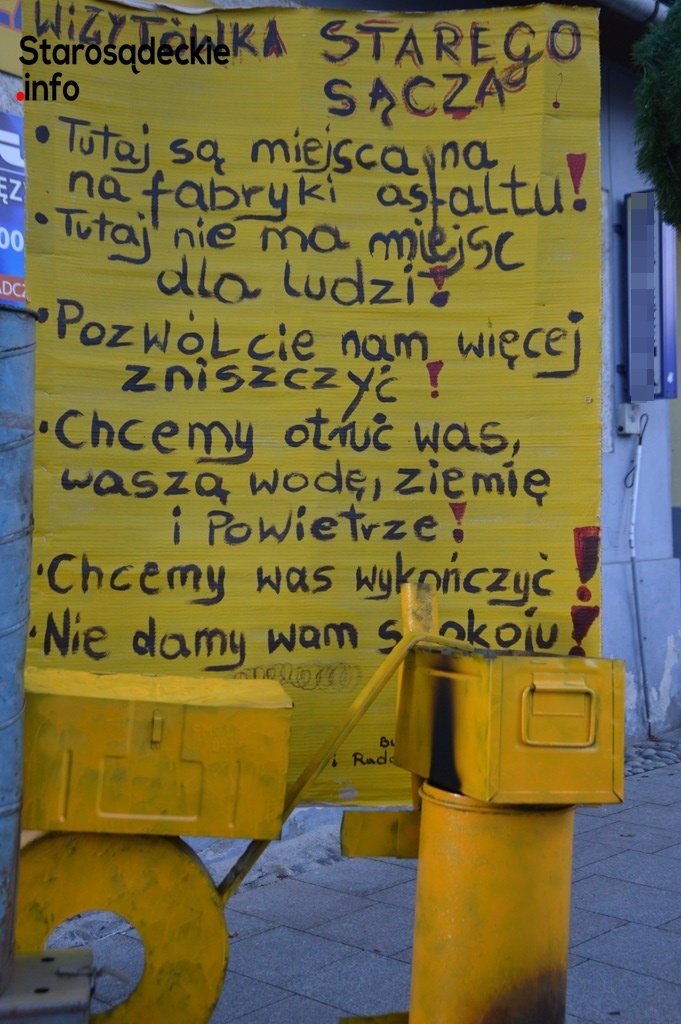 WiZYTÓWKA STAREGO
SĄCZA
Starosądeckie
.info
• Tutaj są miejsca na
na fabryki asfaltu!
• Tutaj nie ma miejsc
dla ludzi!
• Pozwólcie nam więcej
zniszczyć !
• Chcemy otruć was,
waszą wodę, ziemię
i Powietrze!
• Chcemy was wykończyć!
• Nie damy wam spokoju!
i
00
ADCZ